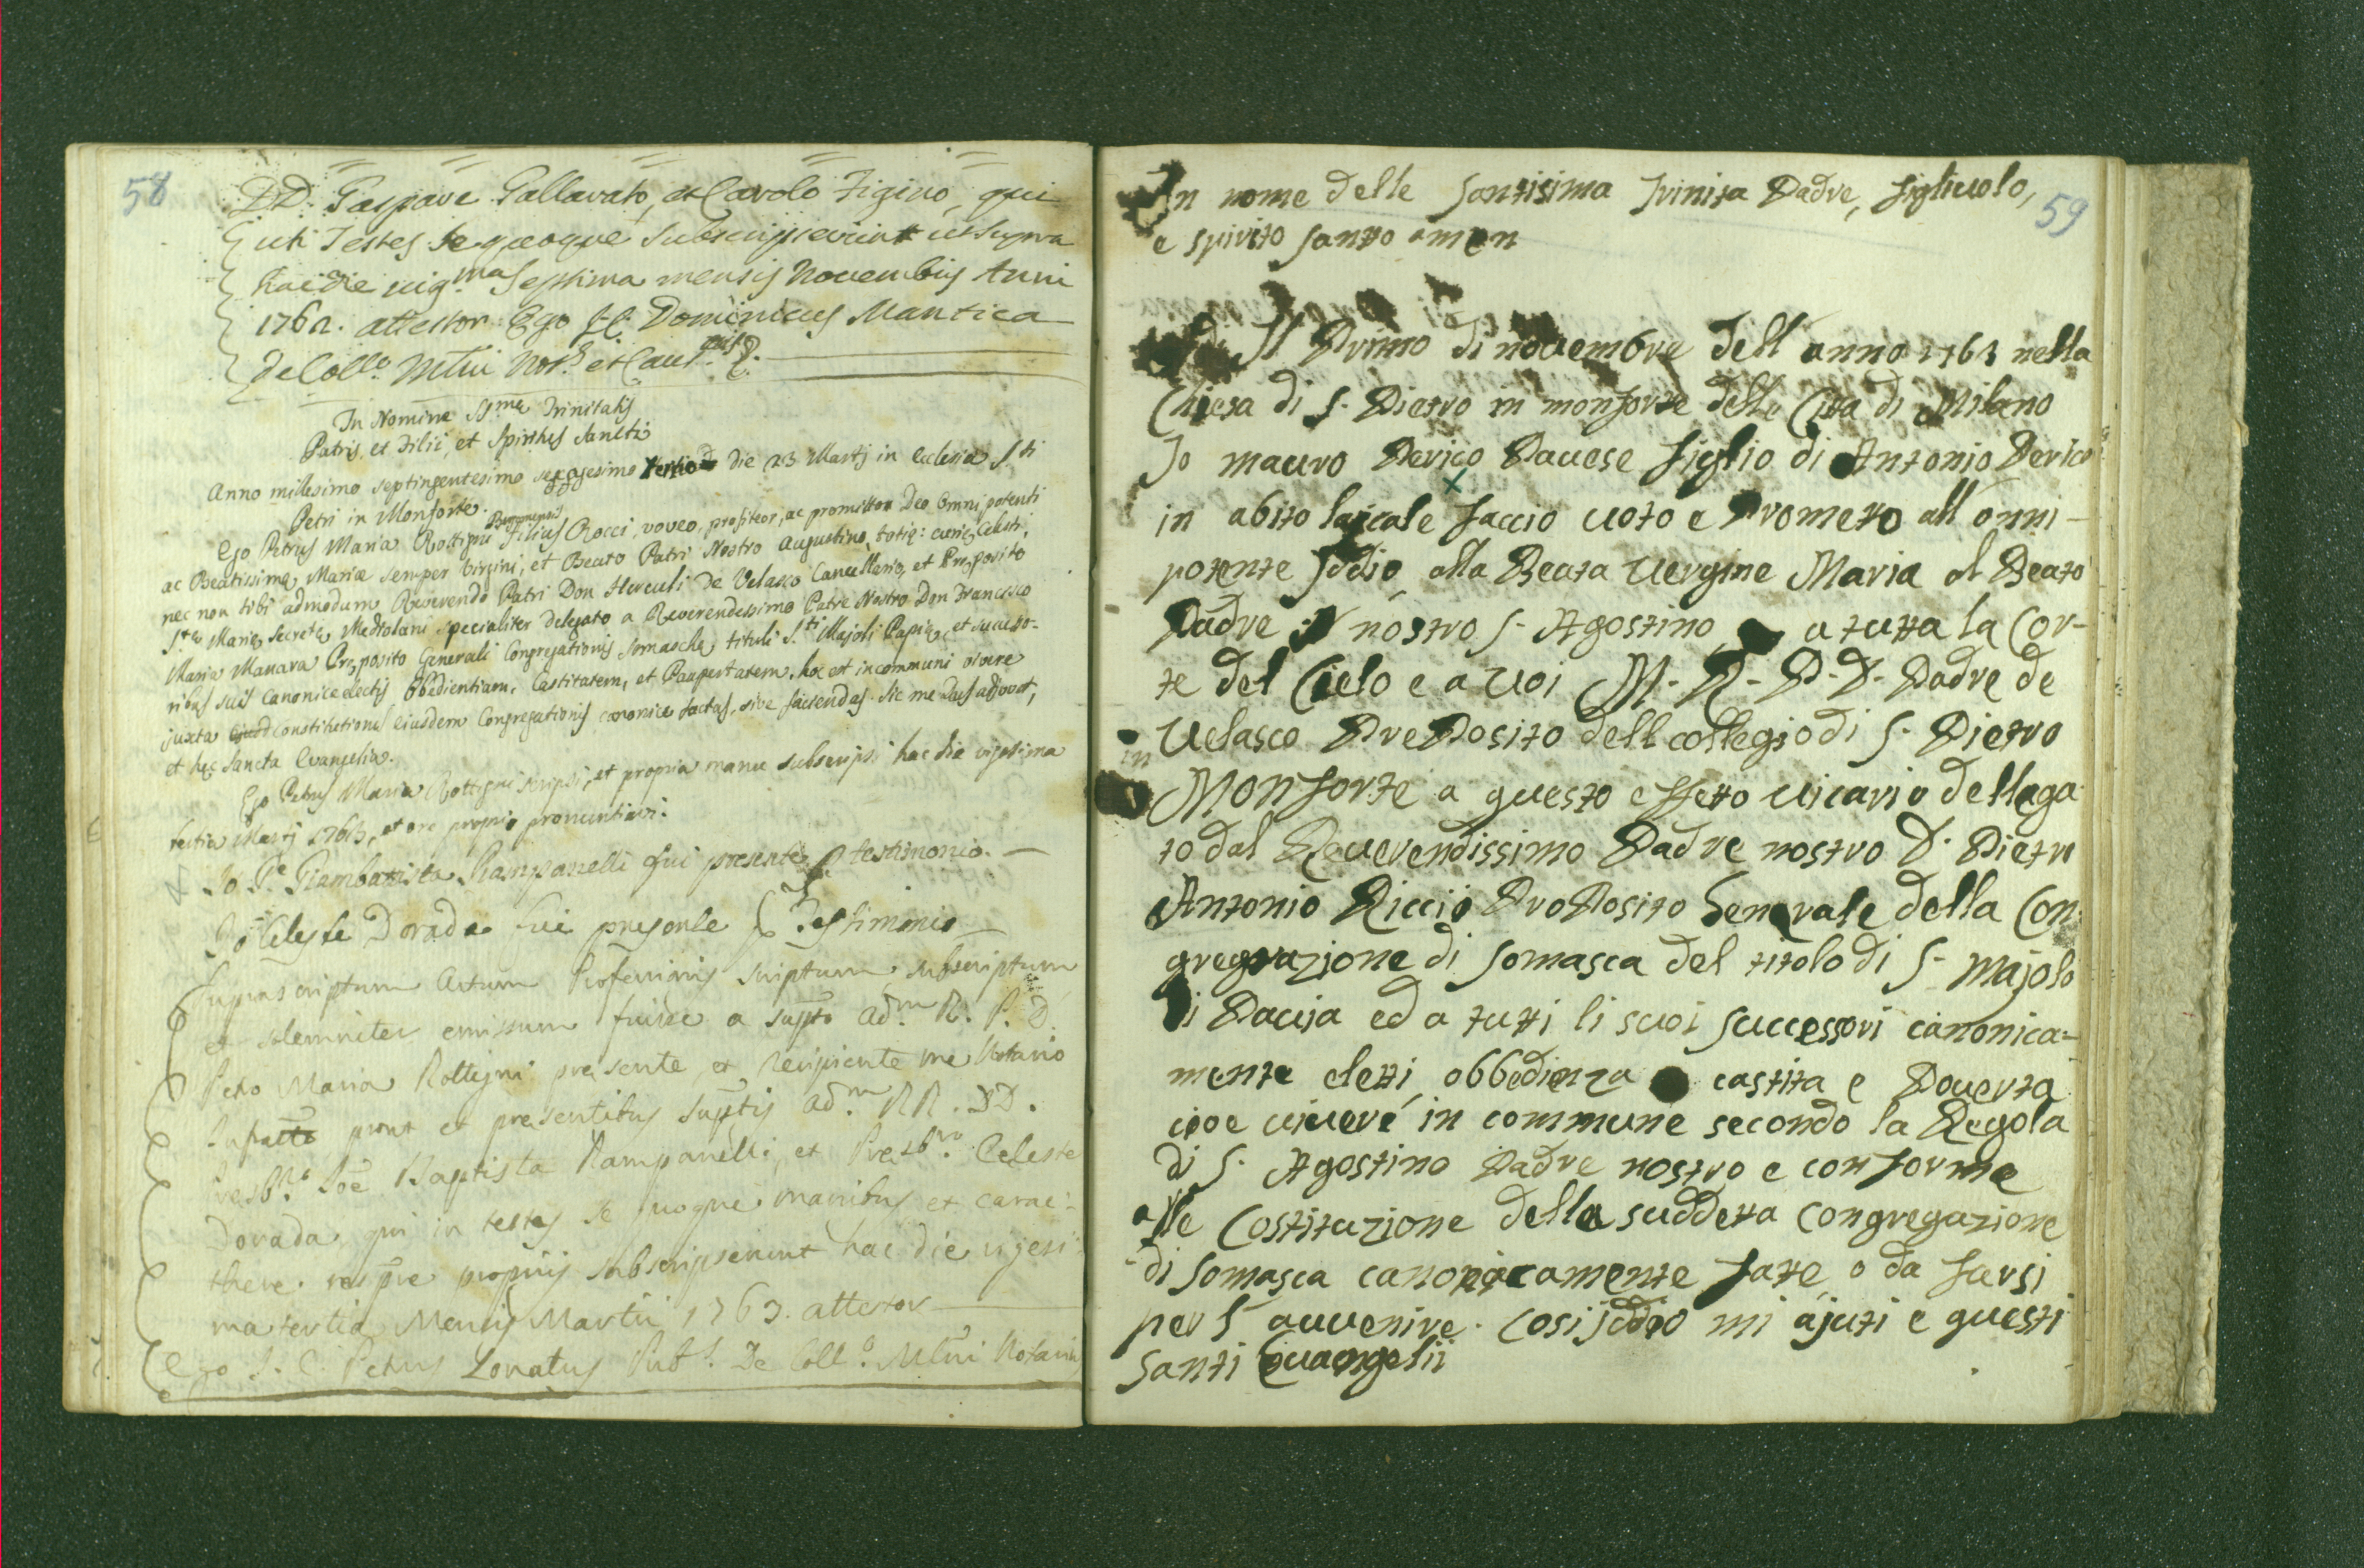 58
DD. Gaspare Gallarato, et Carolo Figino, qui
uti Testes se quoque subscripserunt ut supra
hac die vig.ma Septima mensis Novembris Anni
1762. attestor Ego J.C. Dominicus Mantica
de Coll.o Mlni Not.s et Caus.
In Nomine SS.mæ Trinitatis
Patris, et Filii, et Spiritus Sancti
Anno millesimo septingentesimo sexagesimo tertio die 23 Martj in Ecclesia S.ti
Petri in Monforte.
Ego Petrus Maria Rottigni Bergomensis Filius Rocci, voveo, profiteor, ac promitto Deo Omnipotenti
ac Beatissimæ Mariæ semper Virgini, et Beato Patri Nostro Augustino, totiq: curiæ Celesti,
nec non tibi admodum Reverendo Patri Don Herculi De Velasco Cancellario, et Præposito
S.tæ Mariæ Secretæ Mediolani specialiter delegato a Reverendissimo Patre Nostro Don Francisco
Maria Manara Præposito Generali Congregationis Somaschæ tituli S.ti Majoli Papiæ, et successo-
ribus suis canonice electis Obedientiam, Castitatem, et Paupertatem, hoc est in communi vivere
juxta constitutiones eiusdem Congregationis canonice factas, sive faciendas. Sic me Deus adjuvet,
et hæc Sancta Evangelia.
Ego Petrus Maria Rottigni scripsi, et propria manu subscripsi hac die vigesima
tertia Martj 1763, et ore proprio pronuntiavi.
Io P.e Giambattista Rampanelli fui presente p testimonio.
Io Celeste Dorada fui presente p Testimonio
Suprascriptum Actum Professionis scriptum, subscriptum
et solemniter emissum fuisse a supto ad.m R. P. D.
Petro Maria Rottigni presente, et recipiente me Notario
prout et presentibus suptis ad.m RR. DD.
Presb.ro Joe Baptista Rampanelli, et Presb.ro Celeste
Dorada, qui in testes se quoque manibus et carac-
there respve propriis subscripserunt hac die vigesi-
ma tertia Mensis Martii 1763. attestor
Ego J. C. Petrus Lonatus Pub.s De Coll.o Mlni Notarius
59
In nome delle santisima trinita Padre, figliuolo,
e spirito santto amen
Il Primo di novembre dell anno 1763 nella
Chiesa di S. Pietro in monforte della Citta di Milano
Io mauro Perico Pavese figlio di Antonio Perico
in abito laicale faccio voto e Prometto all onni-
potente Iddio alla Beata Vergine Maria al Beato
Padre nostro S. Agostino a tutta la Cor-
te del Cielo e a voi M. R. P. D. Padre de
Velasco PrePosito dell collegio di S. Pietro
in
Monforte a questo effetto vicario dellega
to dal Reverendissimo Padre nostro D. Pietro
Antonio Riccij ProPosito Generale della Con-
gregrazione di Somasca del titolo di S. Majolo
di Pavia ed a tutti li suoi successori canonica=
mente eletti, obbedienza castita e Poverta
cioe vivere in commune secondo la Regola
di S. Agostino Padre nostro e conforme
alle Costituzione della suddetta congregazione
di Somasca canonicamente fatte, o da farsi
per l avvenire. cosi iddio mi ajuti e questi
santi Evangelii